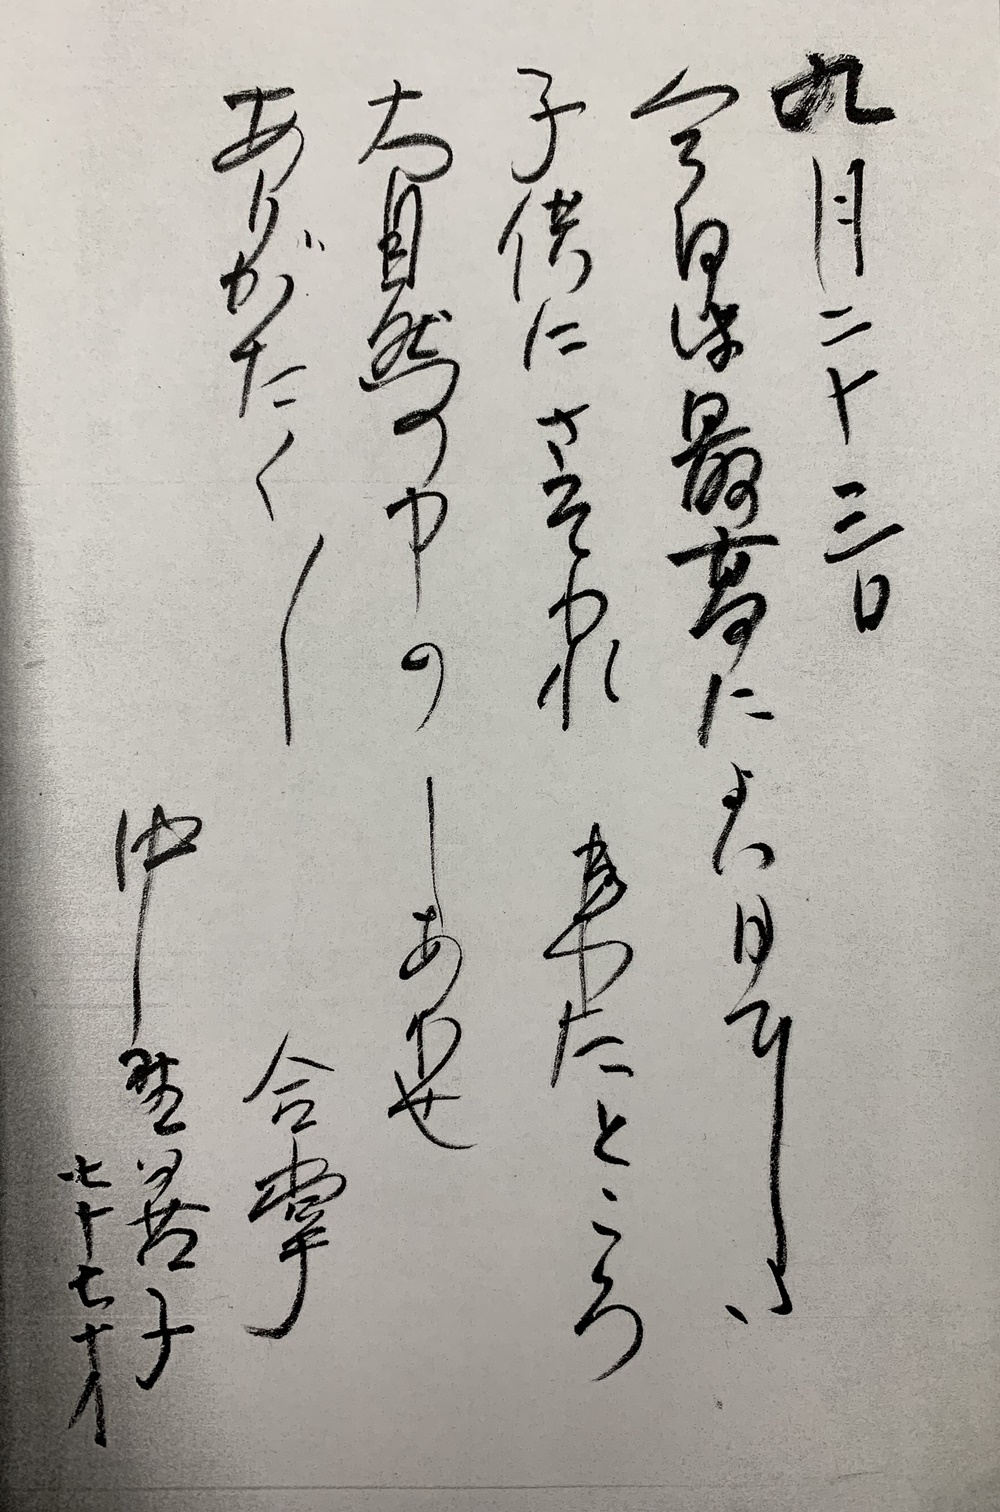 九月二十三日
今日は最高によい日でした
子供にさそわれ 来たところ
大自然の中の しあわせ
ありがたく〱
合掌
仲野
七十七才